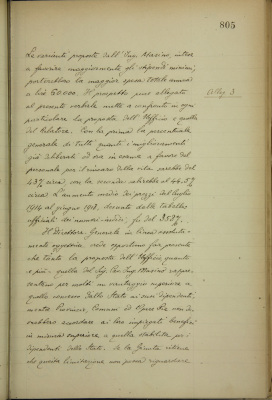 805
Le varianti proposte dall'Ing. Marino, intese
a favorire maggiormente gli stipendi minimi,
porterebbero la maggior spesa totale annua
a lire 50.000. Il prospetto pure allegato
Alleg. 3
al presente verbale mette a confronto in ogni
particolare la proposta dell'Ufficio e quella
del Relatore. Con la prima la percentuale
generale di tutti quanti i miglioramenti
già deliberati ed ora in esame a favore del
personale per il rincaro della vita sarebbe del
43% circa, con la seconda salirebbe al 44.57%
circa. L'aumento medio dei prezzi dal luglio
1914 al giugno 1918, desunto dalle tabelle
ufficiali dei numeri-indici, fu del
Il Direttore Generale in linea assoluta-
mente oggettiva crede opportuno far presente
che tanto la proposta dell'Ufficio, quanto
e più quella del Sig. Cav. Ing. Marino rappre-
sentano per molti un vantaggio superiore a
quello concesso dallo Stato ai suoi dipendenti,
mentre Provincie, Comuni ed Opere Pie non do-
vrebbero accordare ai loro impiegati benefici
in misura superiore a quella stabilita pei
dipendenti dello Stato. Se la Giunta ritiene
che questa limitazione non possa riguardare